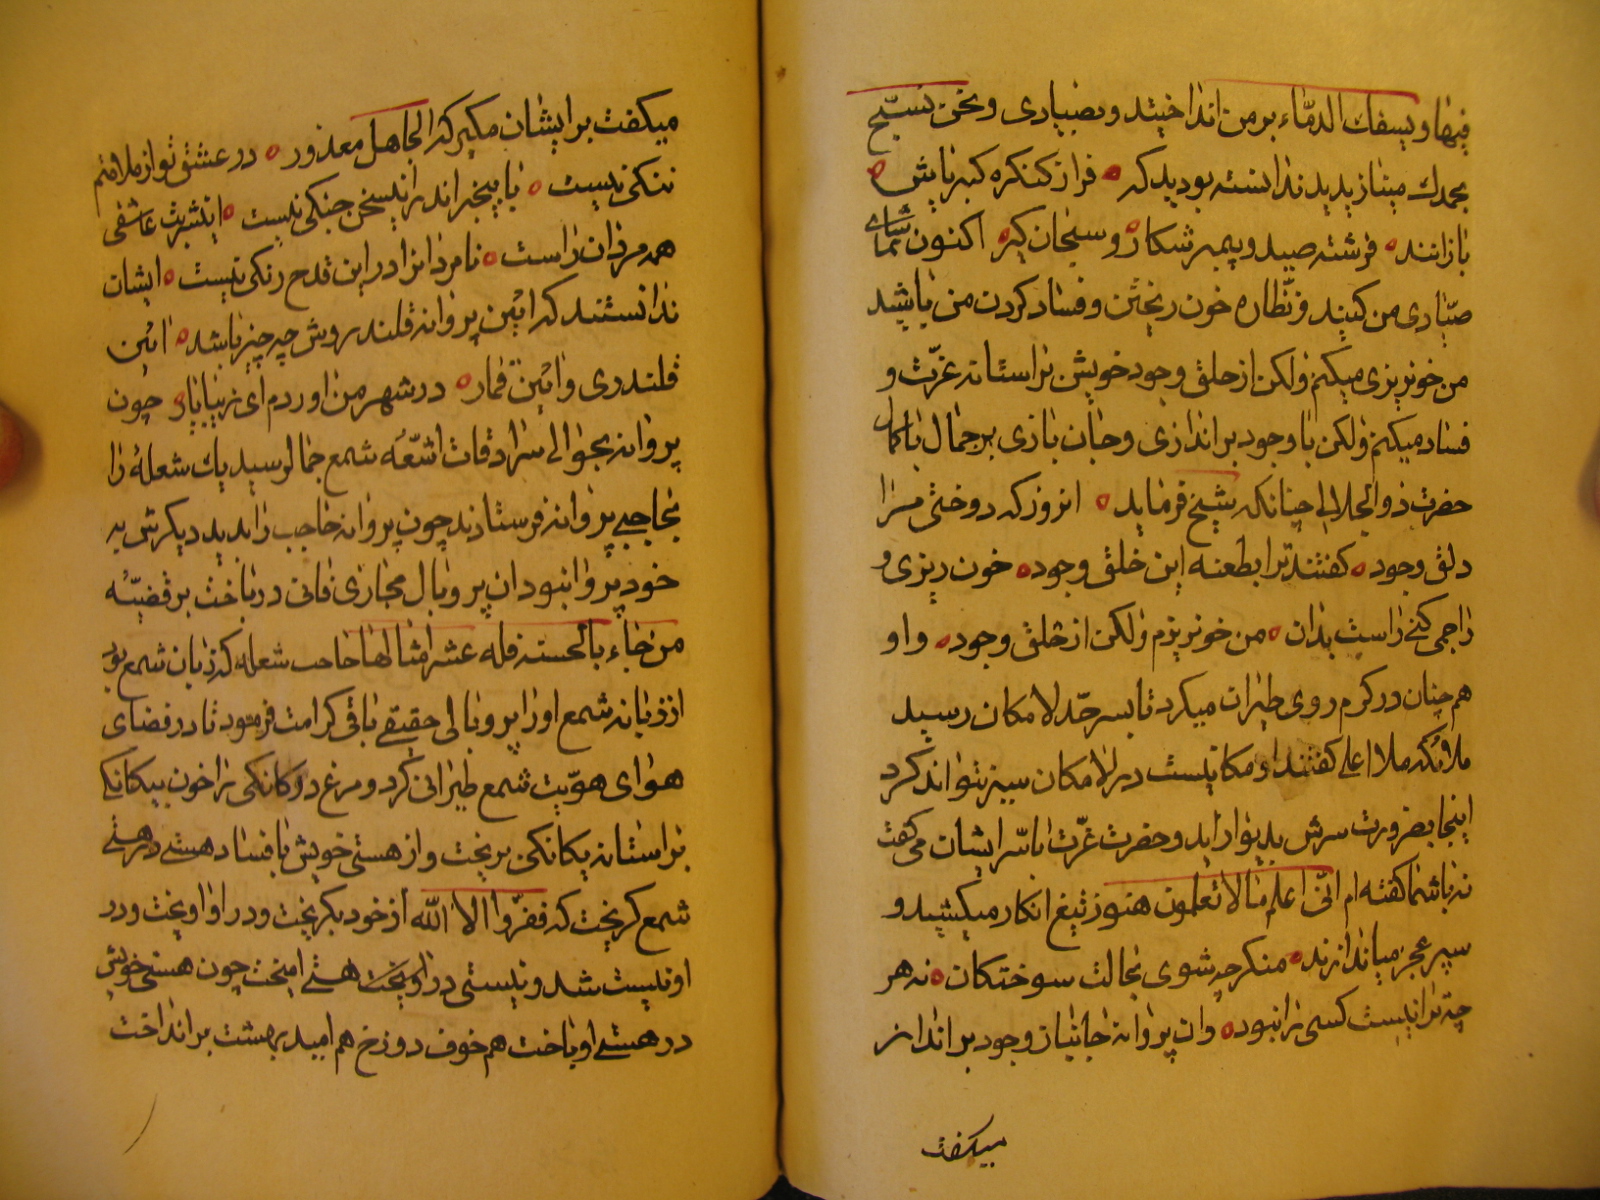 فیها و یسفک الدمّاء بر من انداختید و بضیادی و نحن نسبّح
بحمدک مینازیدید ندانسته بودید که فراز کنکره کبریایش
بازانند فرشته صید و پیمبر شکار و سبحان کیر اکنون تماشای
صیّادی من کنید و نظاره خون ریختن و فساد کردن من باشید
من خونریزی میکنم ولکن از حلق وجود خویش بر استانه عزّت و
فساد میکنم ولکن با وجود براندازی و جان بازی بر جمال با کمال
حضرت ذو الجلالی چنانکه شیخ فرماید انروز که دوختی مرا
دلق وجود کفتند ترا بطعنه این خلق وجود خون ریزی و
راجمی کنی راست بدان من خونریزم ولکن از خلق وجود و او
هم چنان در کرم روی طیران میکرد تا بسر حدّ لامکان رسید
ملائکه ملا اعلی کفتند او مکانیست در لامکان سیر نتواند کرد
اینجا بضرورت سرش بدیوار اید و حضرت عزّت باسرّ ایشان می کفت
نه باشما کفته ام انّی اعلم مالا تعلمون هنوز تیغ انکار میکشید و
سپر عجز میاندازند منکر چه شوی بحالت سوختکان نه هر
چه ترا نیست کسی را نبود وان پروانه جانباز وجود برانداز
میکفت
میکفت بر ایشان مکیر که الجاهل معذور در عشق تو از ملامتم
ننکی نیست با بیخبر اندر اینسخن جنکی نیست این شربت عاشقی
همه مردان راست نامردانرا در این قدح رنکی نیست ایشان
ندانستند که ائین پروانه قلندروش چه چیز باشد ائین
قلندری و ائین قمار در شهر من اوردم ای زیبا یار چون
پروانه بحوالی سرادقات اشعّه شمع جمال رسید یک شعله را
بحاجبی پروانه فرستادند چون پروانه حاجب را بدید دیکرش به
خود پروا نبود ان پر و بال مجازی فانی در باخت بر قضیّه
من جاء بالحسنه فله عشر امثالها حاجب شعله که زبان شمع بود
از زبانه شمع او را پر و بالی حقیقی باقی کرامت فرمود تا در فضای
هوای هویّت شمع طیرانی کرد و مرغ دوکانکی را خون بیکانکی
بر استانه یکانکی بریخت و از هستی خویش با فساد هستی در هستی
شمع کریخت که ففرّوا الا الله از خود بکریخت و در او اویخت و در
او نیست شد و نیستی در اویخت هستی امیخت چون هستی خویش
در هستی او باخت هم خوف دوزخ هم امید بهشت برانداخت